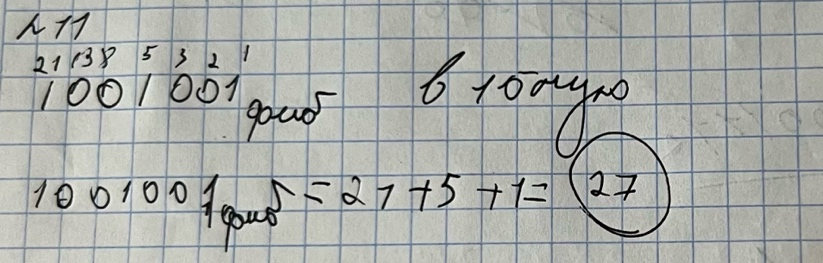 № 11
21 13 8 5 3 2 1
1001001фиб в 10тную
1001001фиб = 21 + 5 + 1 = 27